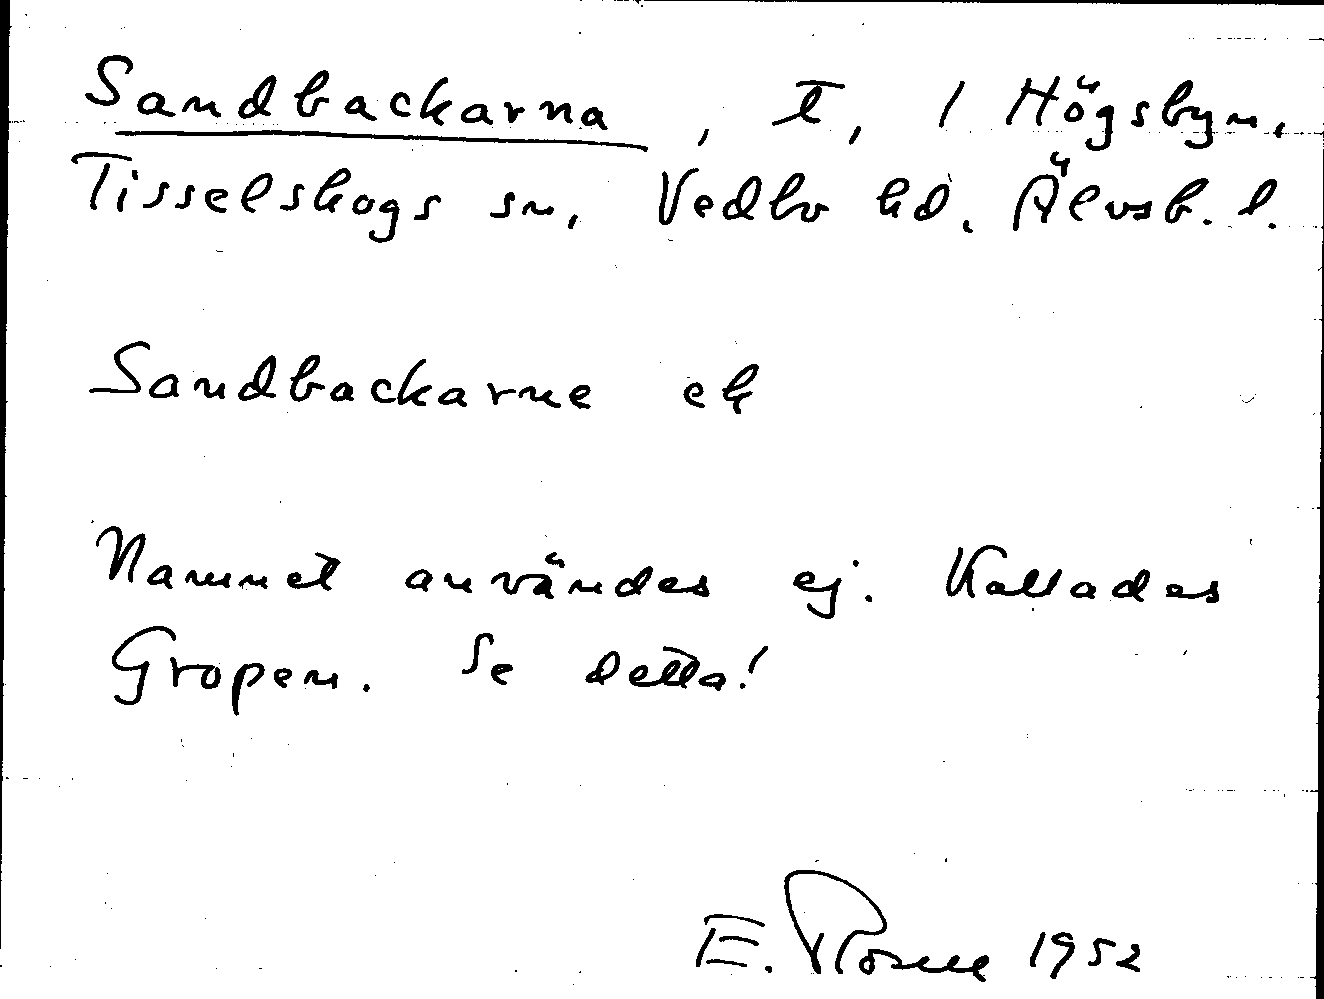 Sandbackarna, t, 1 Högsbyn.
Tisselskogs sn, Vedbo hd. Älvsb. l.
Sandbackarne ek
Namnet användes ej. Kallades
Gropen. Se detta!
E. 1952